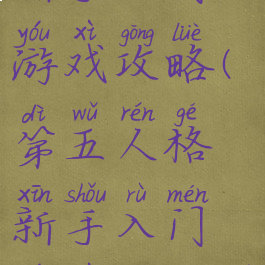 yóu xì gōng lüè
游戏攻略(
dì wǔ rén gé
第五人格
xīn shǒu rù mén
新手入门